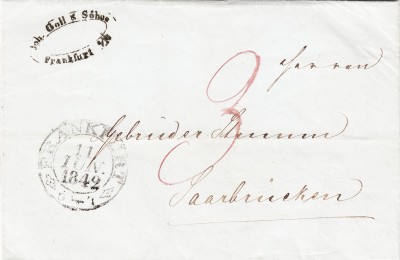 Joh. Goll & Söhne
Frankfurt a/M
Herren
3
Gebrüder
FRANKFURT
11
JUN.
1842
Saarbrücken